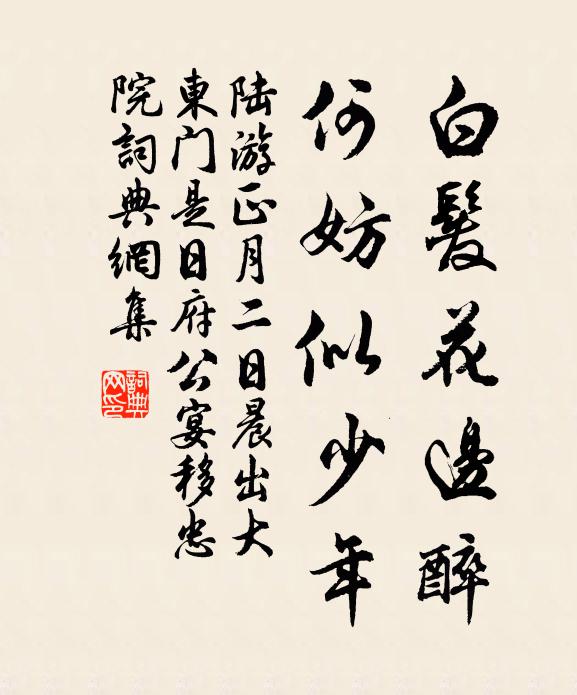 白髮花邊醉
何妨似少年
陆游正月二日晨出大
東门是日府公宴移忠
院詞典網集
詞典
网印